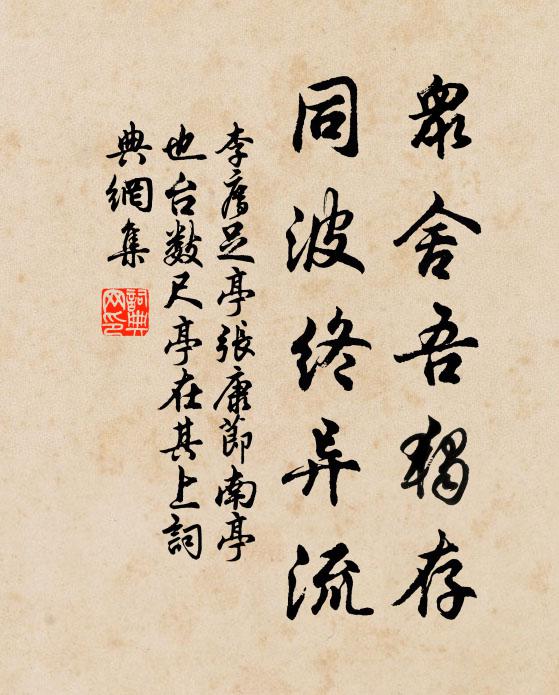 衆舍吾獨存
同波终异流
李廌足亭張康節南亭
也台数尺亭在其上詞
典網集
詞典网印